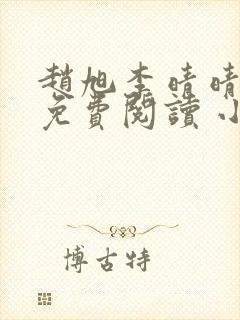 趙旭李晴晴
免費閱讀小
博古特